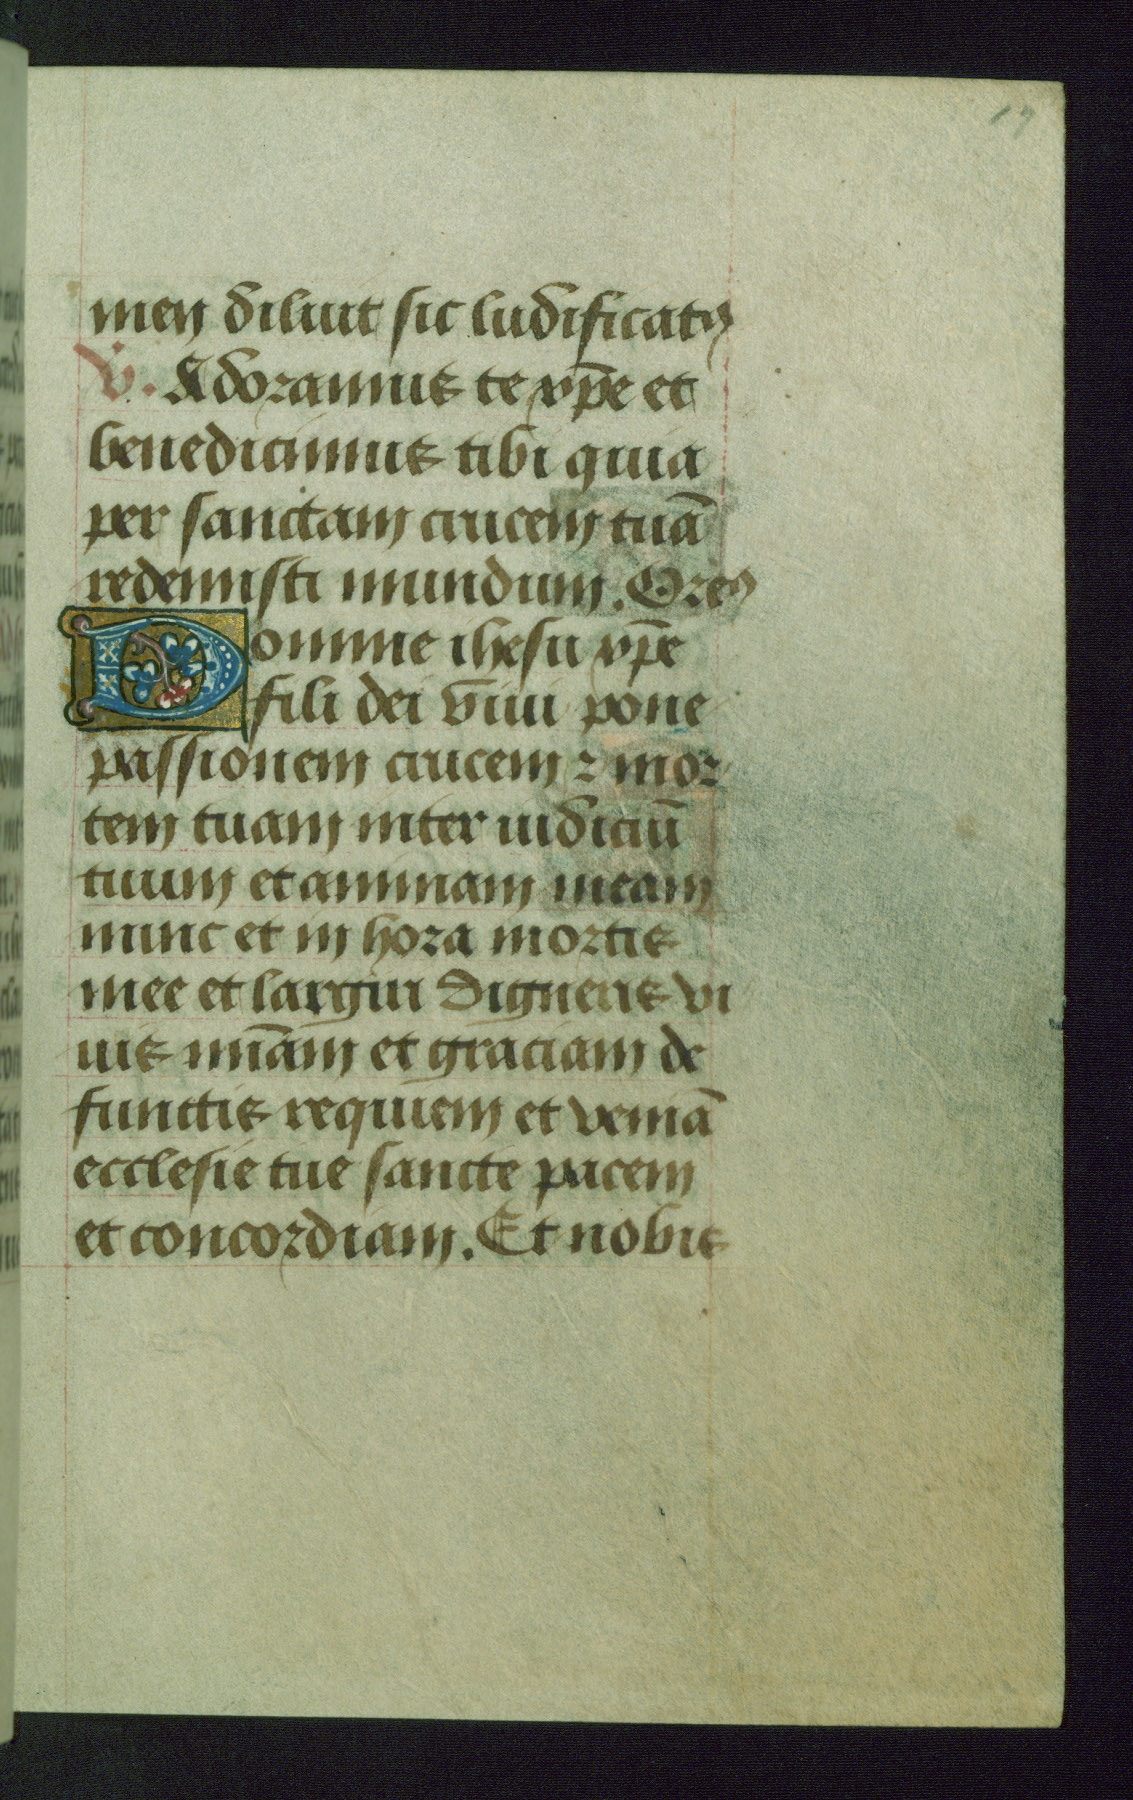 17
men diluit sic ludificatꝰ
V. Adoramus te xp̄e et
benedicimus tibi quia
per sanctam crucem tuā
redemisti mundum. Oreꝰ
Domine ihesu xp̄e
fili dei viui pone
passionem crucem ⁊ mor
tem tuam inter iudiciū
tuum et animam meam
nunc et in hora mortis
mee et largiri digneris vi
uis mīam et graciam de
functis requiem et veniā
ecclesie tue sancte pacem
et concordiam. Et nobis